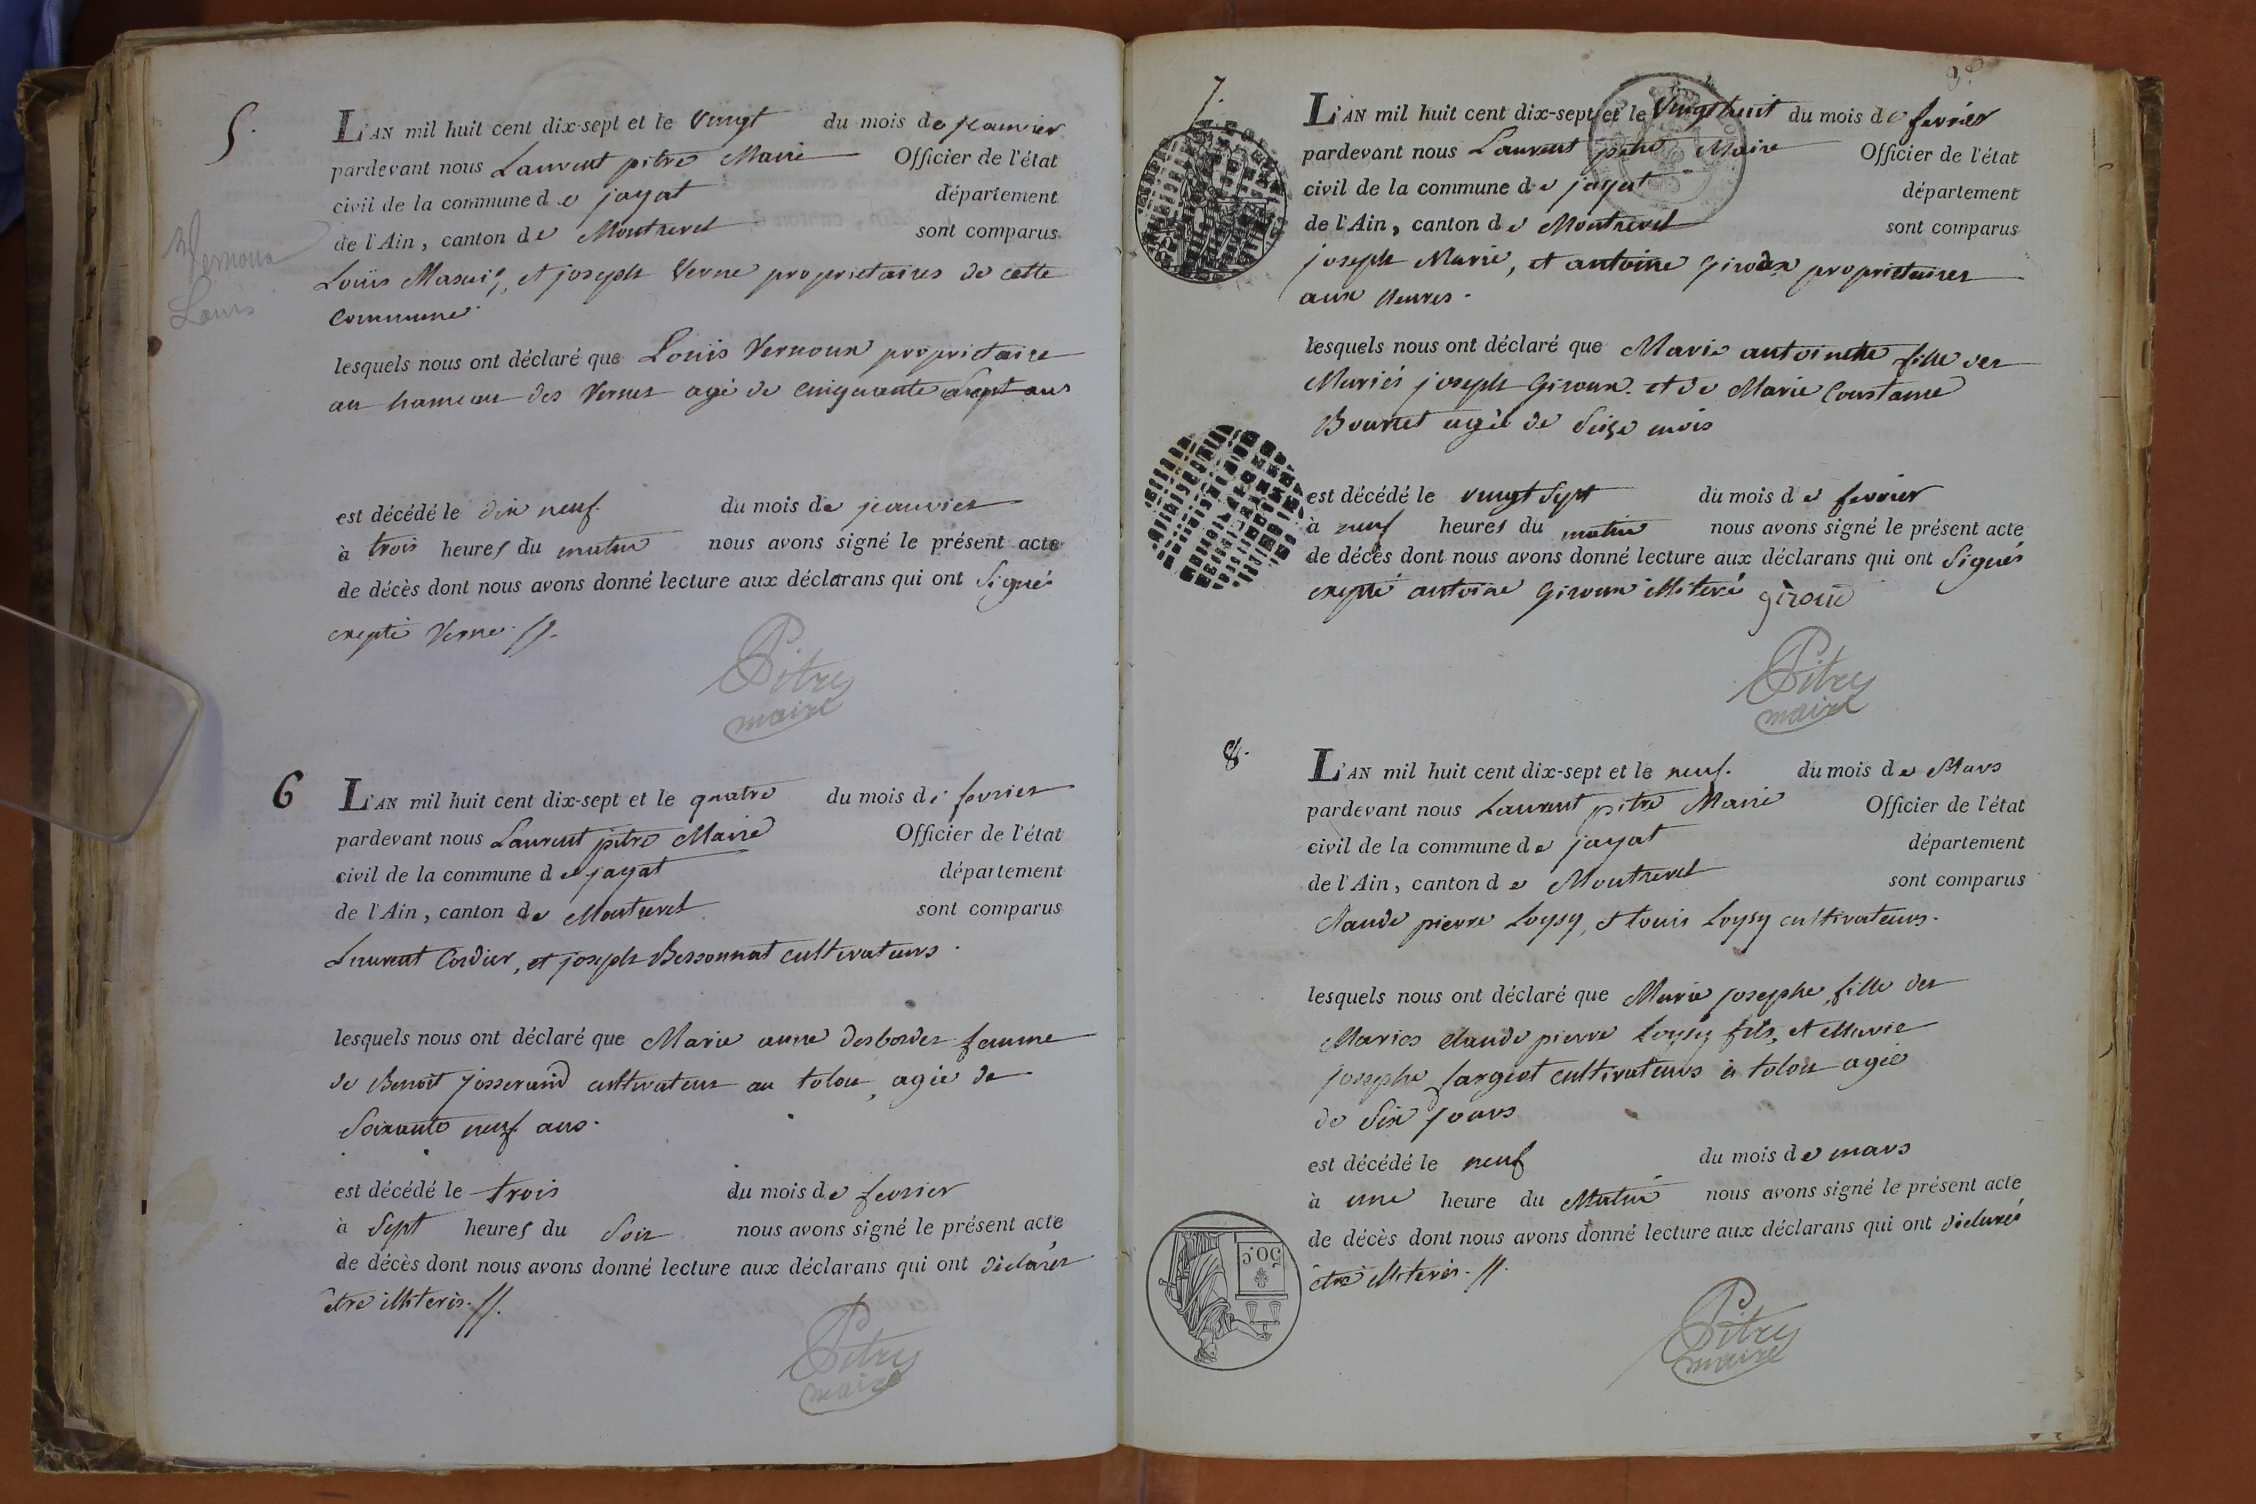 5.
L'AN mil huit cent dix-sept et le vingt du mois de janvier
pardevant nous Laurent pitre Maire Officier de l'état
civil de la commune de jayat département
de l'Ain, canton de Montrevel sont comparus
Vernoux
Louis
Louis Masuis, et joseph Verne proprietaires de cette
commune.
lesquels nous ont déclaré que Louis Vernoux proprietaire
au hameau des Vernes agé de cinquante sept ans
est décédé le dix neuf du mois de janvier
à trois heures du matin nous avons signé le présent acte
de décès dont nous avons donné lecture aux déclarans qui ont Signés
excepté Verne.
Pitre
maire
6
L'AN mil huit cent dix-sept et le quatre du mois de fevrier
pardevant nous Laurent pitre Maire Officier de l'état
civil de la commune de jayat département
de l'Ain, canton de Montrevel sont comparus
Laurent Cordier, et joseph Bessonnat cultivateurs.
lesquels nous ont déclaré que Marie anne desbordes femme
de Benoit josserand cultivateur au tolou, agée de
Soixante neuf ans.
est décédé le trois du mois de fevrier
à Sept heures du Soir nous avons signé le présent acte
de décès dont nous avons donné lecture aux déclarans qui ont déclarés
être illiteris.
Pitre
maire
7.
L'AN mil huit cent dix-sept et le Vingthuit du mois de fevrier
pardevant nous Laurent pitre Maire Officier de l'état
civil de la commune de jayat département
de l'Ain, canton de Montrevel sont comparus
joseph Marie, et antoine Giroux proprietaires
aux Heures.
lesquels nous ont déclaré que Marie antoinette fille des
Mariés joseph Giroux et de Marie Constance
Bourcet agée de Seize mois
est décédé le vingt Sept du mois de fevrier
à neuf heures du matin nous avons signé le présent acte
de décès dont nous avons donné lecture aux déclarans qui ont Signés
excepté antoine Giroux illiteré giroux
Pitre
maire
8.
L'AN mil huit cent dix-sept et le neuf. du mois de Mars
pardevant nous Laurent pitre Maire Officier de l'état
civil de la commune de jayat département
de l'Ain, canton de Montrevel sont comparus
Claude pierre Loysy, et Louis Loysy cultivateurs.
lesquels nous ont déclaré que Marie josephe, fille des
Maries Claude pierre Loysy fils, et Marie
josephe fargeot cultivateurs à tolou agée
de Six jours
est décédé le neuf du mois de mars
à une heure du Matin nous avons signé le présent acte
de décès dont nous avons donné lecture aux déclarans qui ont déclarés
être illiteris.
50.c
Pitre
maire